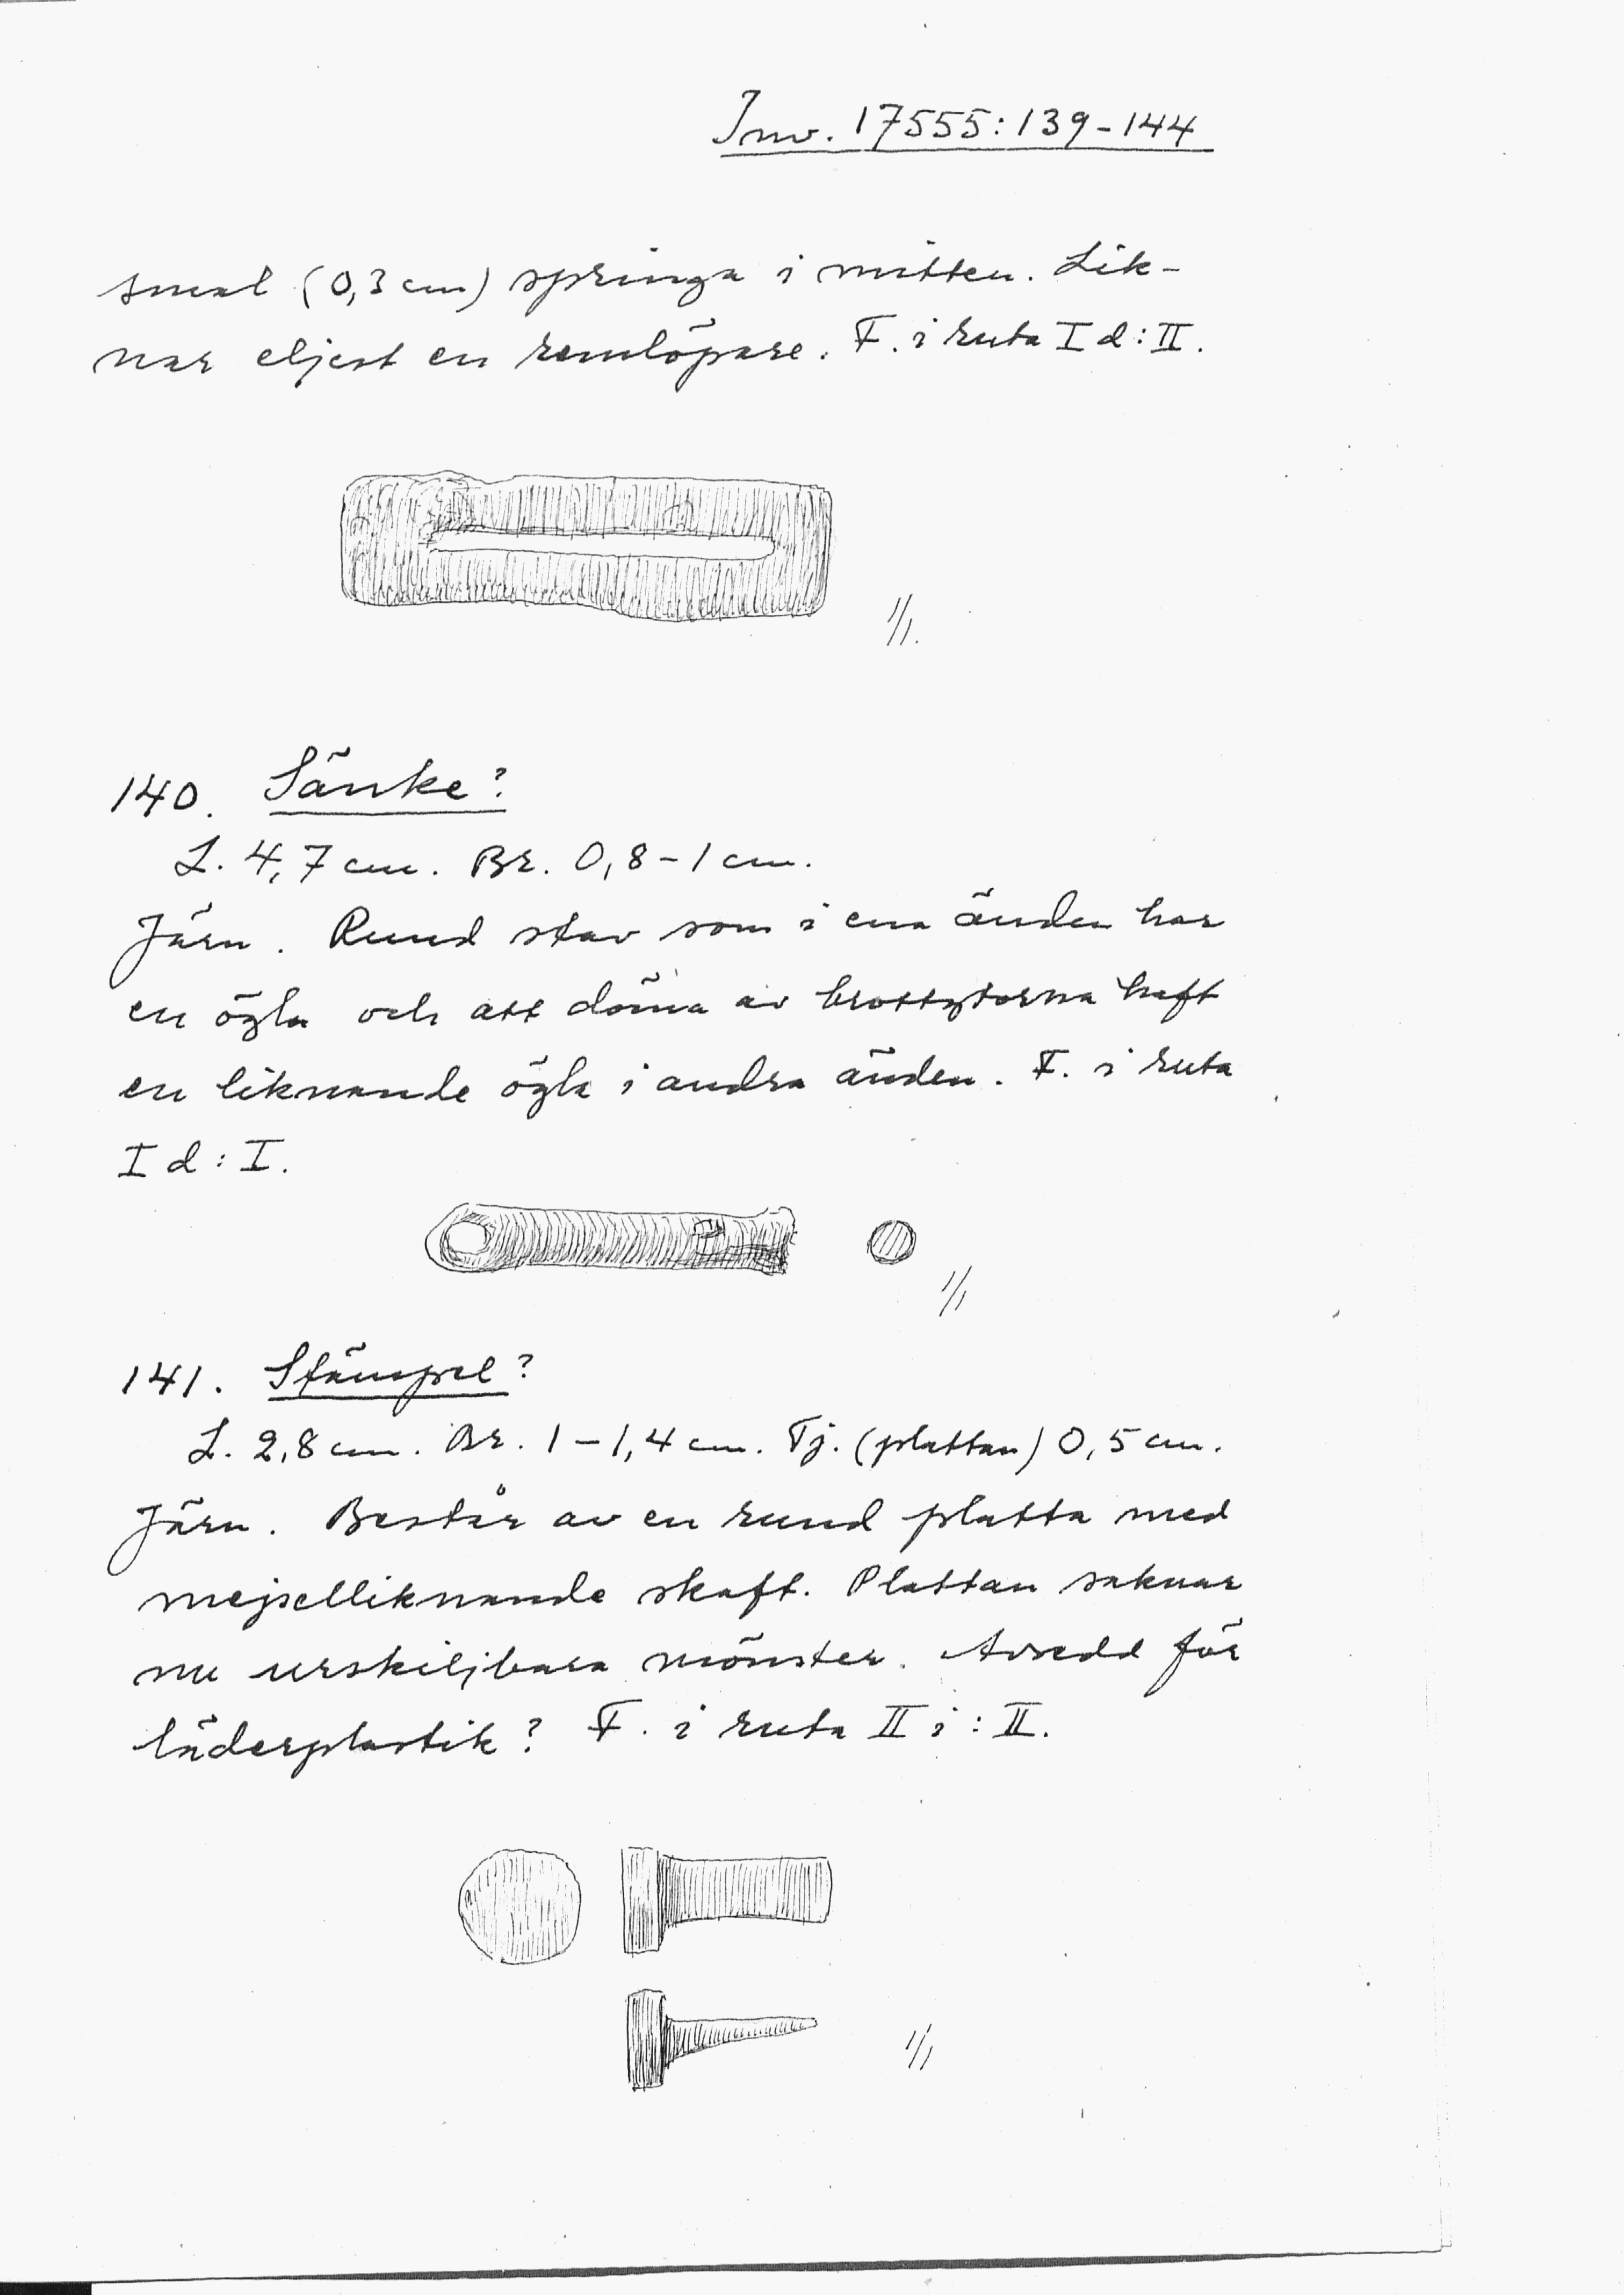 Inv. 17555:139-144
smal (0,3 cm) springa i mitten. Lik-
nar eljest en remlöpare. F. i ruta I d:II.
1/1.
140. Sänke?
L. 4,7 cm. Br. 0,8-1 cm.
Järn. Rund stav som i ena änden har
en ögla och att döma av brottytorna haft
en liknande ögla i andra änden. F. i ruta
I d:I.
1/1
141. Stämpel?
L. 2,8 cm. Br. 1-1,4 cm. Tj. (plattan) 0,5 cm.
Järn. Består av en rund platta med
mejselliknande skaft. Plattan saknar
nu urskiljbara mönster. Avsedd för
läderplastik? F. i ruta II i:II.
1/1